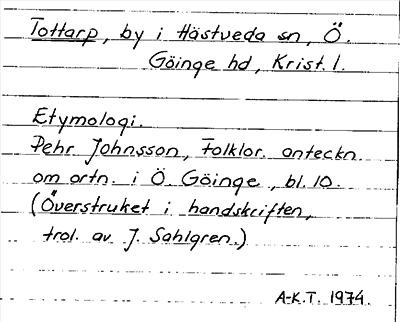 Tottarp, by i Hästveda sn, Ö.
Göinge hd, Krist. l.
Etymologi.
Pehr Johnsson, Folklor. anteckn.
om ortn. i Ö. Göinge, bl. 10.
(Överstruket i handskriften,
trol. av J. Sahlgren.)
A-K.T. 1974.